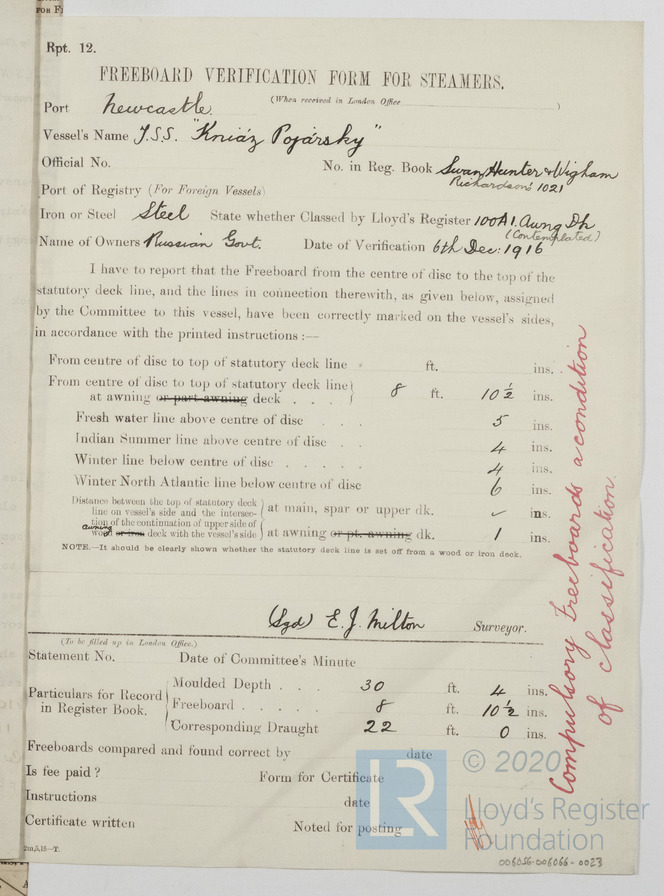 FOR F
Rpt. 12.
FREEBOARD VERIFICATION FORM FOR STEAMERS.
(When received in London Office )
Port Newcastle.
Vessel's Name T.S.S. "Kniáz Pojársky"
Official No. No. in Reg. Book Swan, Hunter & Wigham
Richardsons 1021
Port of Registry (For Foreign Vessels)
Iron or Steel Steel State whether Classed by Lloyd's Register 100A1. Awng Dk
(Contemplated)
Name of Owners Russian Govt. Date of Verification 6th Dec: 1916
I have to report that the Freeboard from the centre of disc to the top of the
statutory deck line, and the lines in connection therewith, as given below, assigned
by the Committee to this vessel, have been correctly marked on the vessel's sides,
in accordance with the printed instructions :—
From centre of disc to top of statutory deck line ft. ins.
From centre of disc to top of statutory deck line
at awning or part awning deck . . . 8 ft. 10 ½ ins.
Fresh water line above centre of disc . . . 5 ins.
Indian Summer line above centre of disc . . 4 ins.
Winter line below centre of disc . . . . . 4 ins.
Winter North Atlantic line below centre of disc 6 ins.
Distance between the top of statutory deck
line on vessel's side and the intersec-
tion of the continuation of upper side of
awning
wood or iron deck with the vessel's side
at main, spar or upper dk. ✓ ins.
at awning or pt. awning dk. 1 ins.
NOTE.—It should be clearly shown whether the statutory deck line is set off from a wood or iron deck.
(Sgd) E. J. Milton Surveyor.
(To be filled up in London Office.)
Statement No. Date of Committee's Minute
Particulars for Record
in Register Book.
Moulded Depth . . . 30 ft. 4 ins.
Freeboard . . . . . 8 ft. 10 ½ ins.
Corresponding Draught 22 ft. 0 ins.
Freeboards compared and found correct by date
Is fee paid ? Form for Certificate
Instructions date
Certificate written Noted for posting
2m,5,15—T.
Compulsory Freeboards a condition
of classification.
LR
© 2020
Lloyd's Register
Foundation
006056-006066-0023